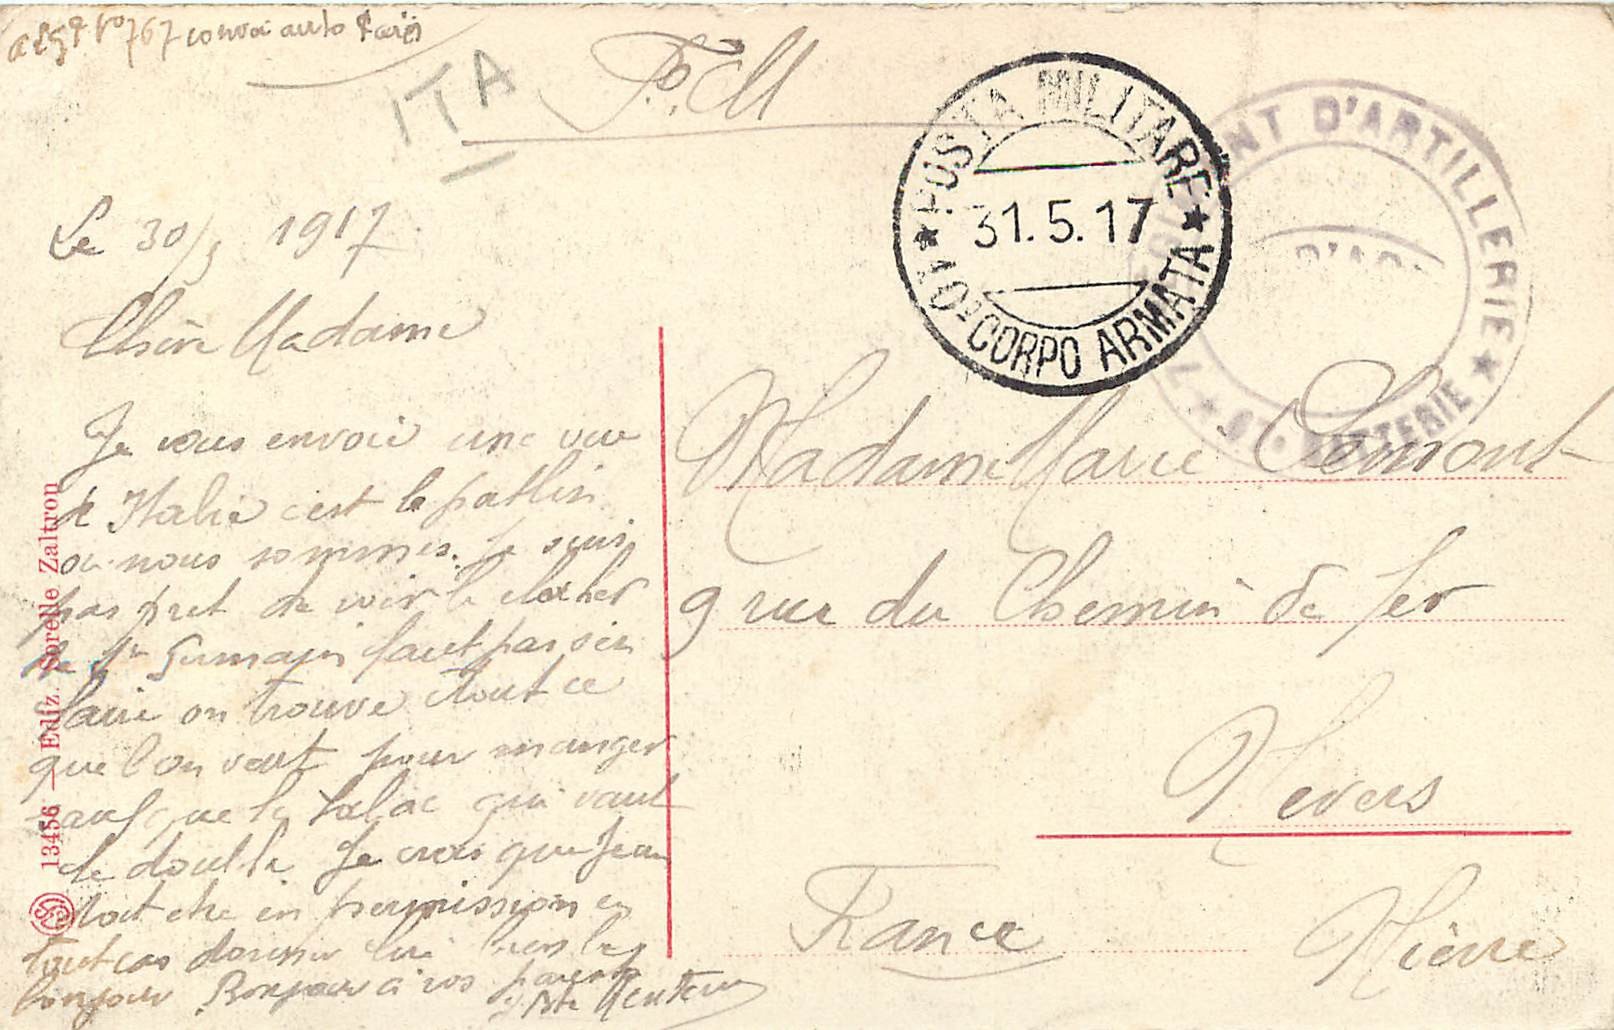 convoi auto Paris
ITA
F. M
POSTA MILITARE
31.5.17
10ª CORPO ARMATA
D'ARTILLERIE
BATTERIE
Le 30/5 1917
Chère Madame
Je vous envoie une vue
de Italie c'est le patlin
ou nous sommes. Je suis
pas pret de voir le clocher
de St Germain faut pas s'en
faire on trouve tout ce
que l'on veut pour manger
sauf que le tabac qui vaut
le double Je crois que Jean
doit etre en permission en
tout cas donner lui bien le
bonjour Bonjour à vos parents
Madame Marie
9 rue du Chemin de fer
Nevers
France
Nièvre
13456 — Ediz. Sorelle Zaltron